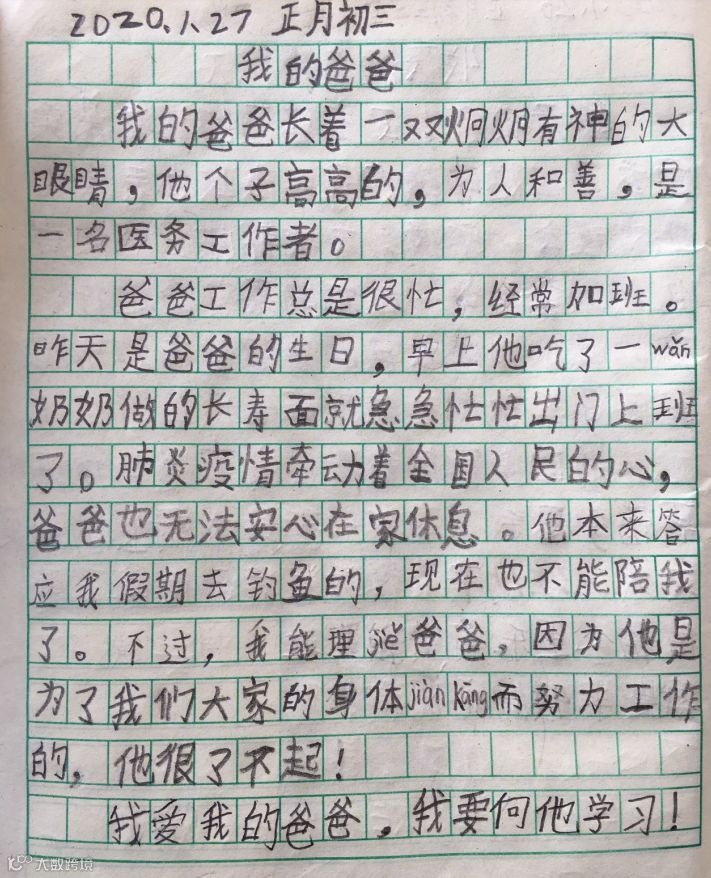 2020.1.27 正月初三
我的爸爸
我的爸爸长着一双炯炯有神的大
眼睛，他个子高高的，为人和善，是
一名医务工作者。
爸爸工作总是很忙，经常加班。
昨天是爸爸的生日，早上他吃了一wǎn
奶奶做的长寿面就急急忙忙出门上班
了。肺炎疫情牵动着全国人民的心，
爸爸也无法安心在家休息。他本来答
应我假期去钓鱼的，现在也不能陪我
了。不过，我能理jiě爸爸，因为他是
为了我们大家的身体jiàn kāng而努力工作
的，他很了不起！
我爱我的爸爸，我要向他学习！
大数跨境